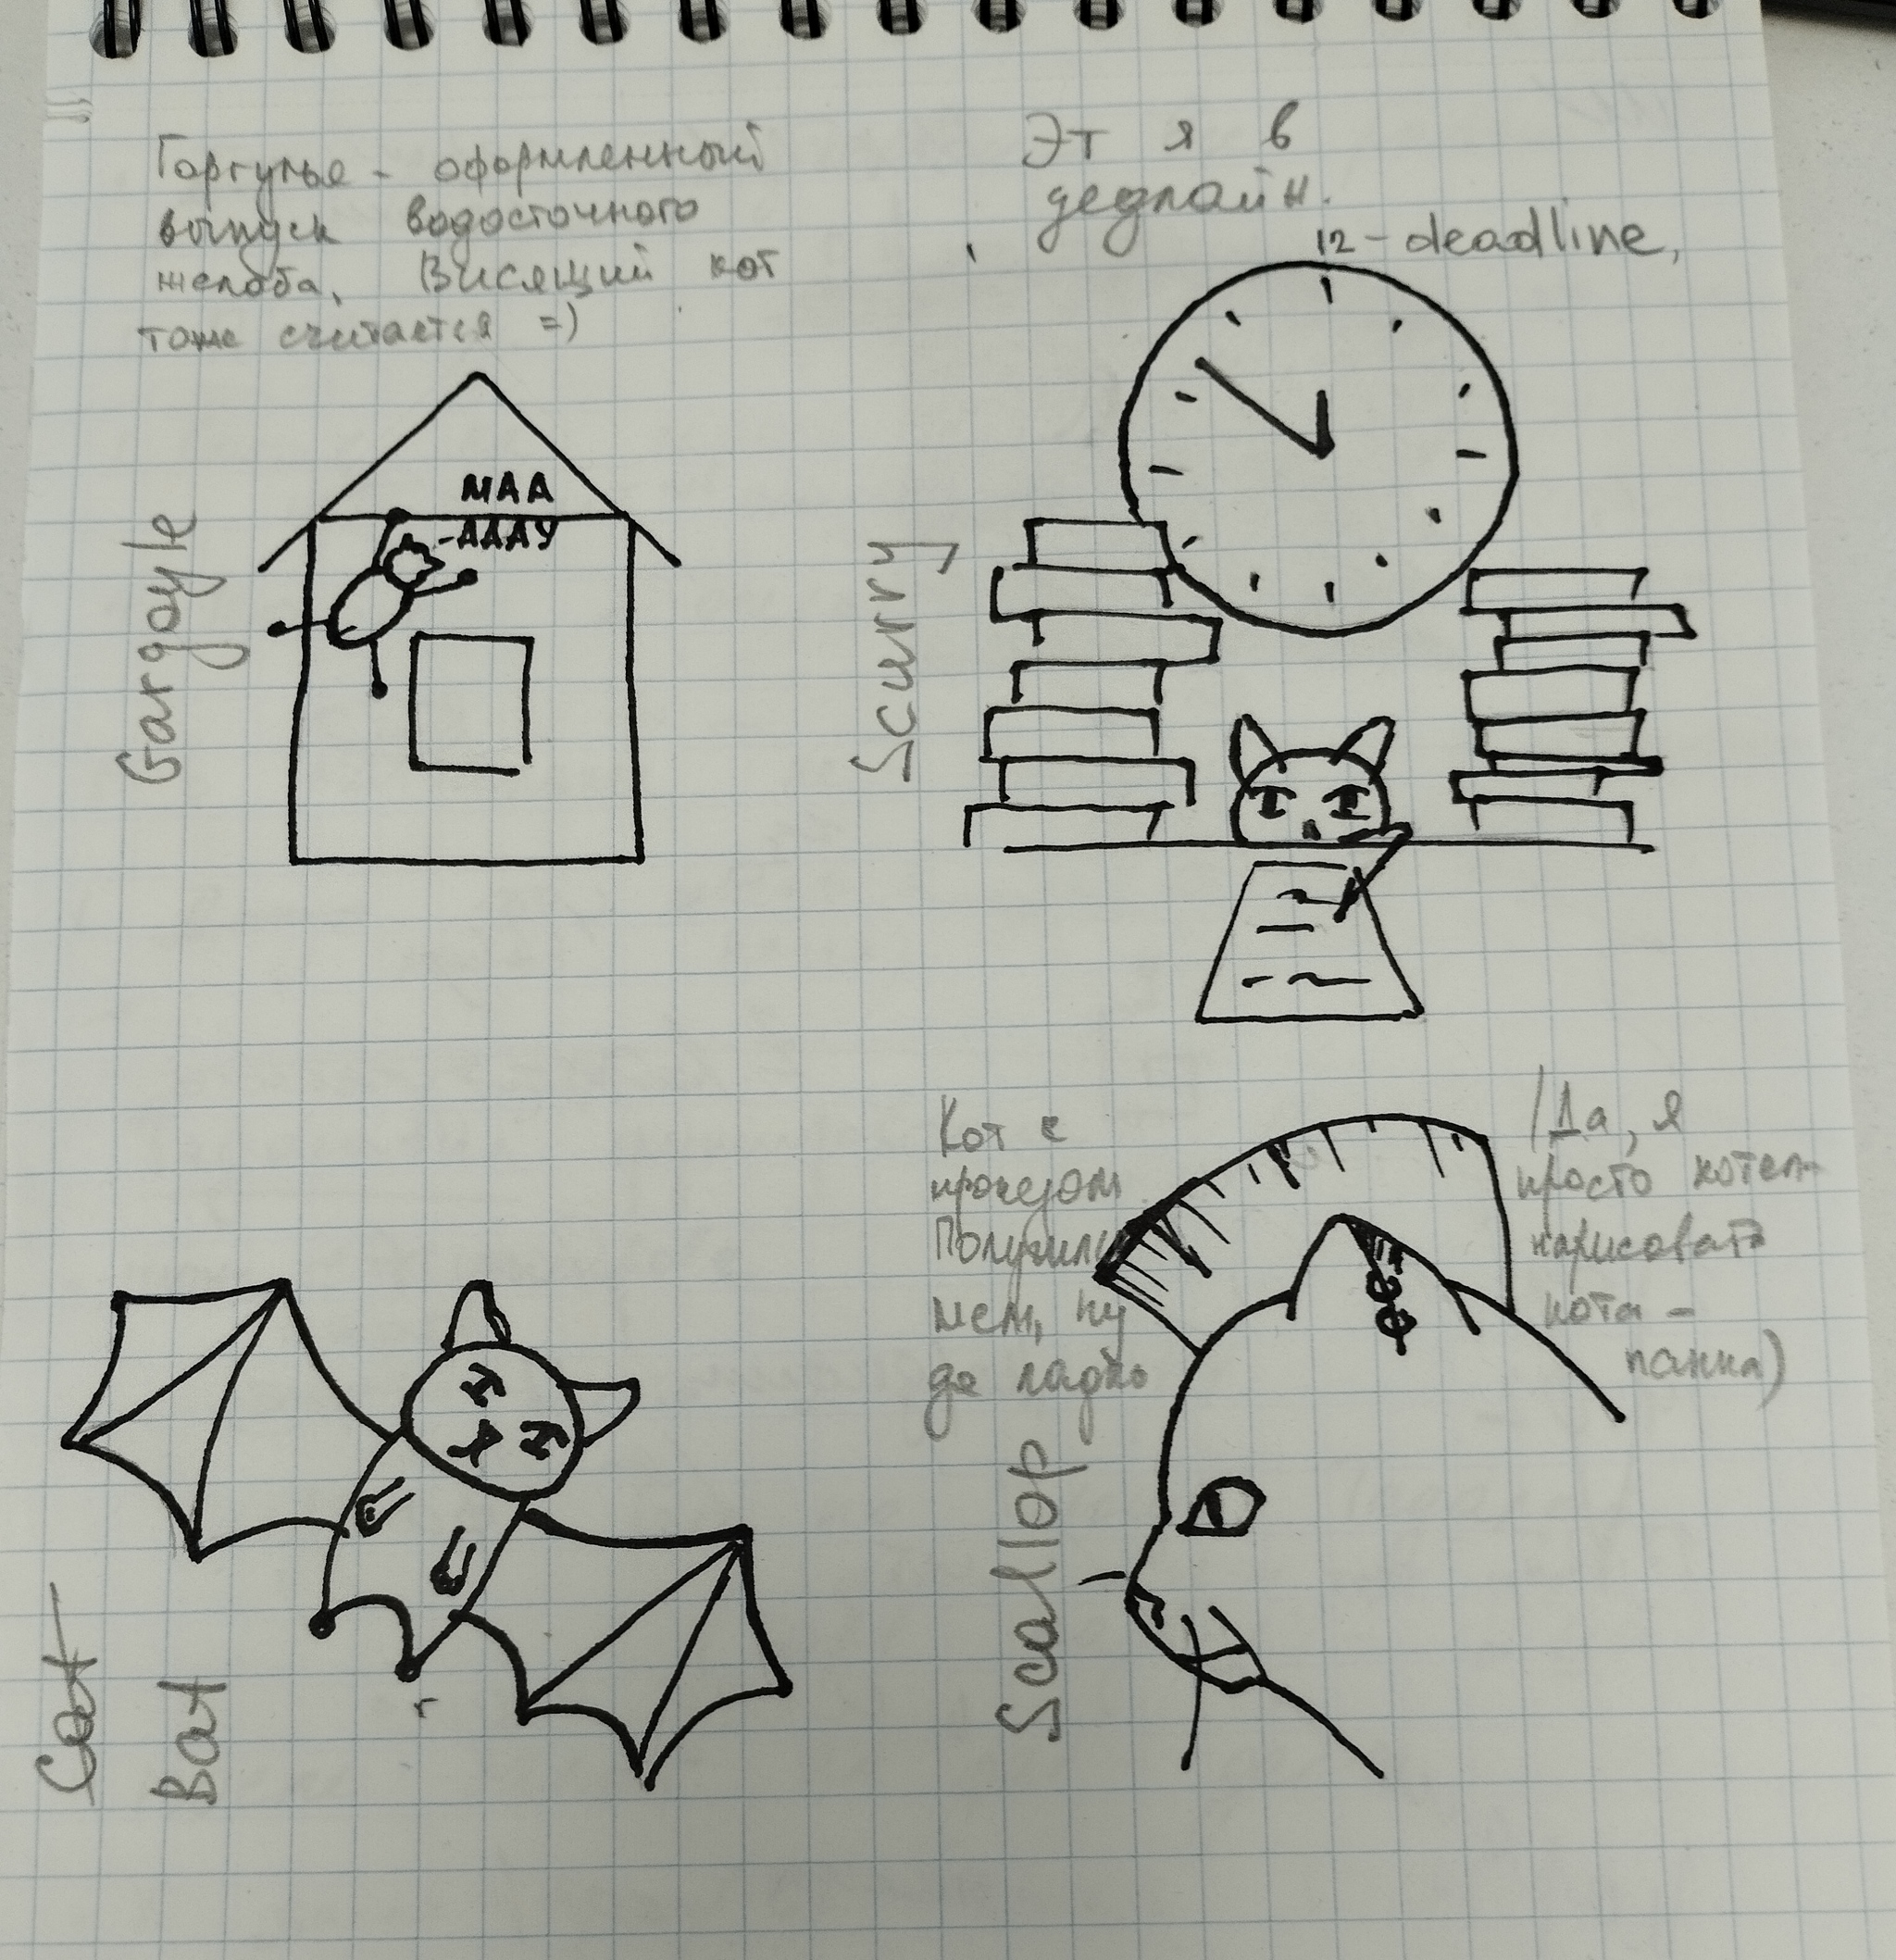 Горгулье - оформленный
выпуск водосточного
желоба. Висящий кот
тоже считается =)
Эт я в
дедлайн.
12 - deadline,
Gargoyle
МАА
-АААУ
Scurry
Кот с
ирокезом
Получился
мем, ну
да ладно
(Да, я
просто хотел
нарисовать
кота -
панка)
Scallop
Cat
Bat